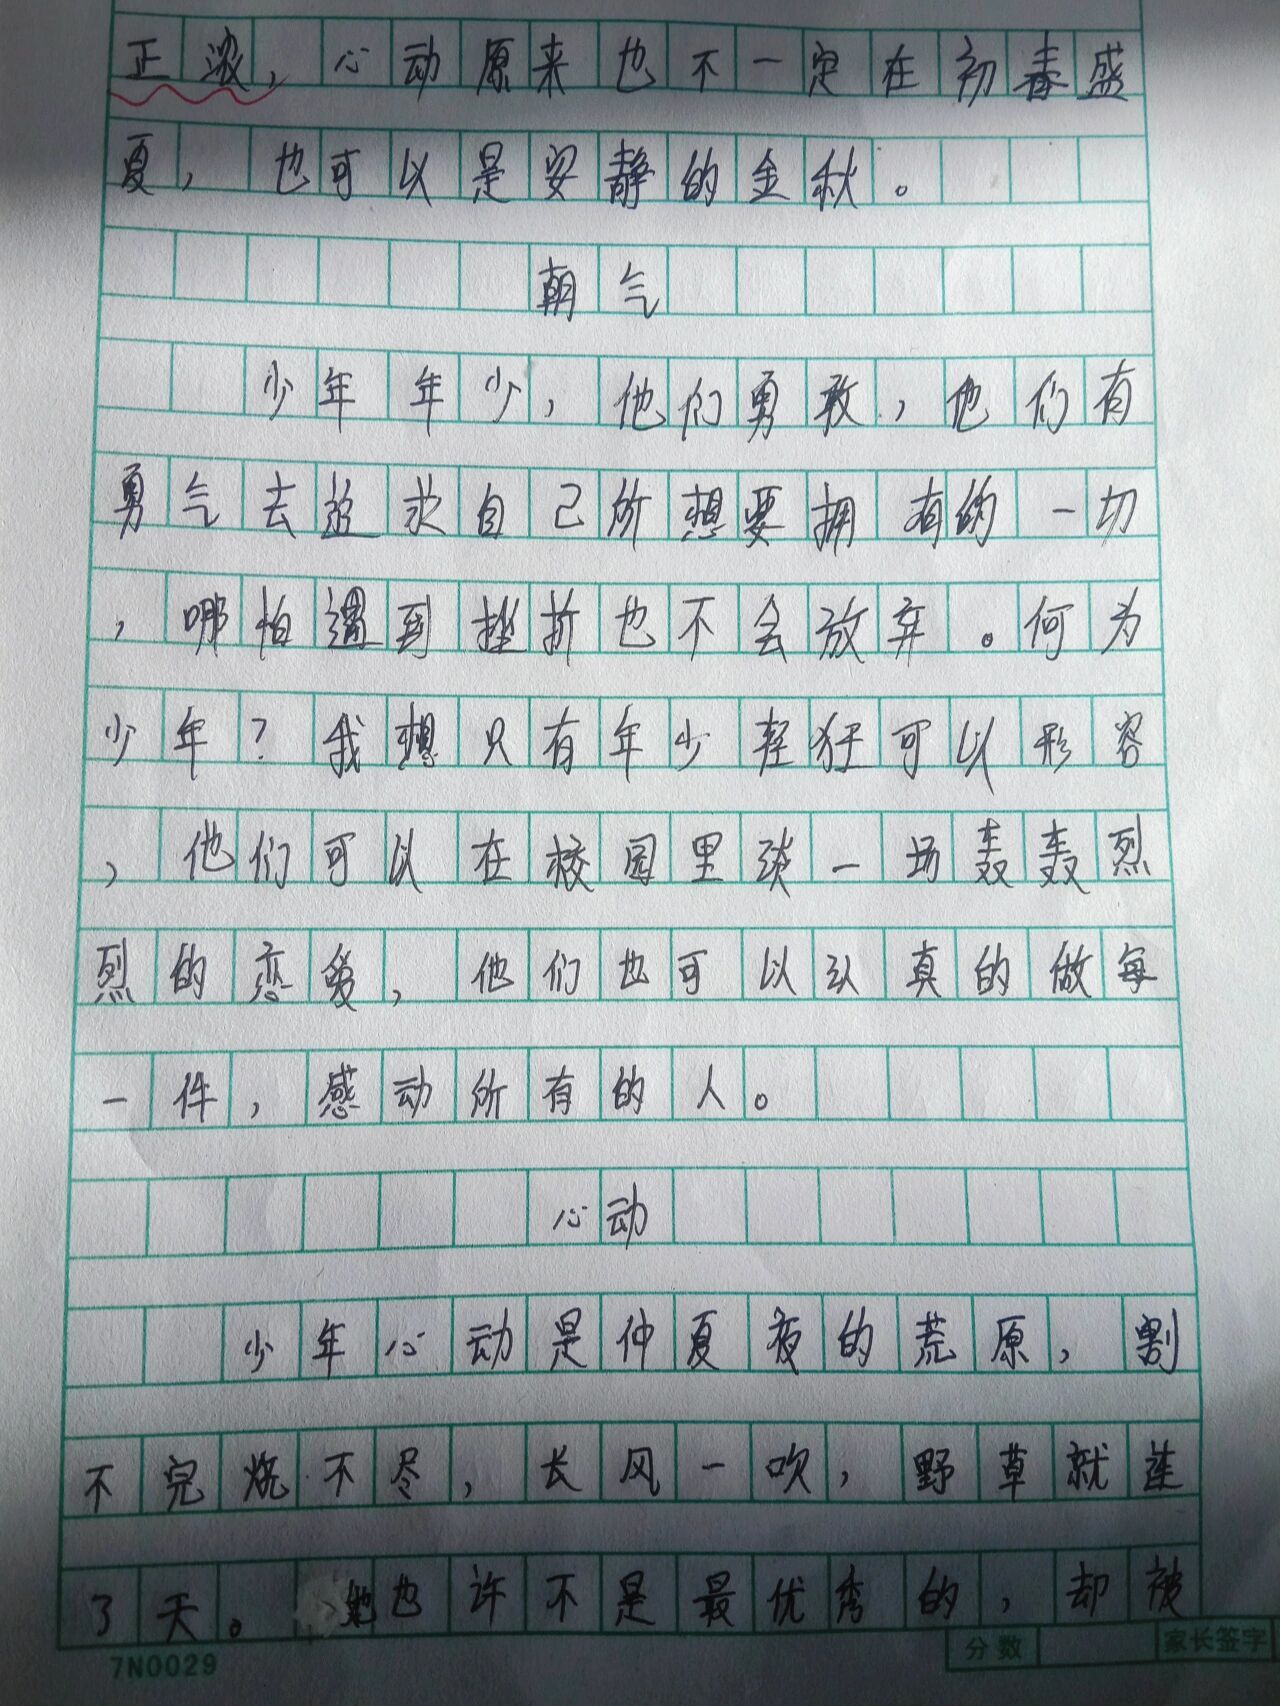 正浓，心动原来也不一定在初春盛
夏，也可以是安静的金秋。
朝气
少年年少，他们勇敢，他们有
勇气去追求自己所想要拥有的一切
，哪怕遇到挫折也不会放弃。何为
少年？我想只有年少轻狂可以形容
，他们可以在校园里谈一场轰轰烈
烈的恋爱，他们也可以认真的做每
一件，感动所有的人。
心动
少年心动是仲夏夜的荒原，割
不完烧不尽，长风一吹，野草就连
了天。她也许不是最优秀的，却被
分数
家长签字
7N0029